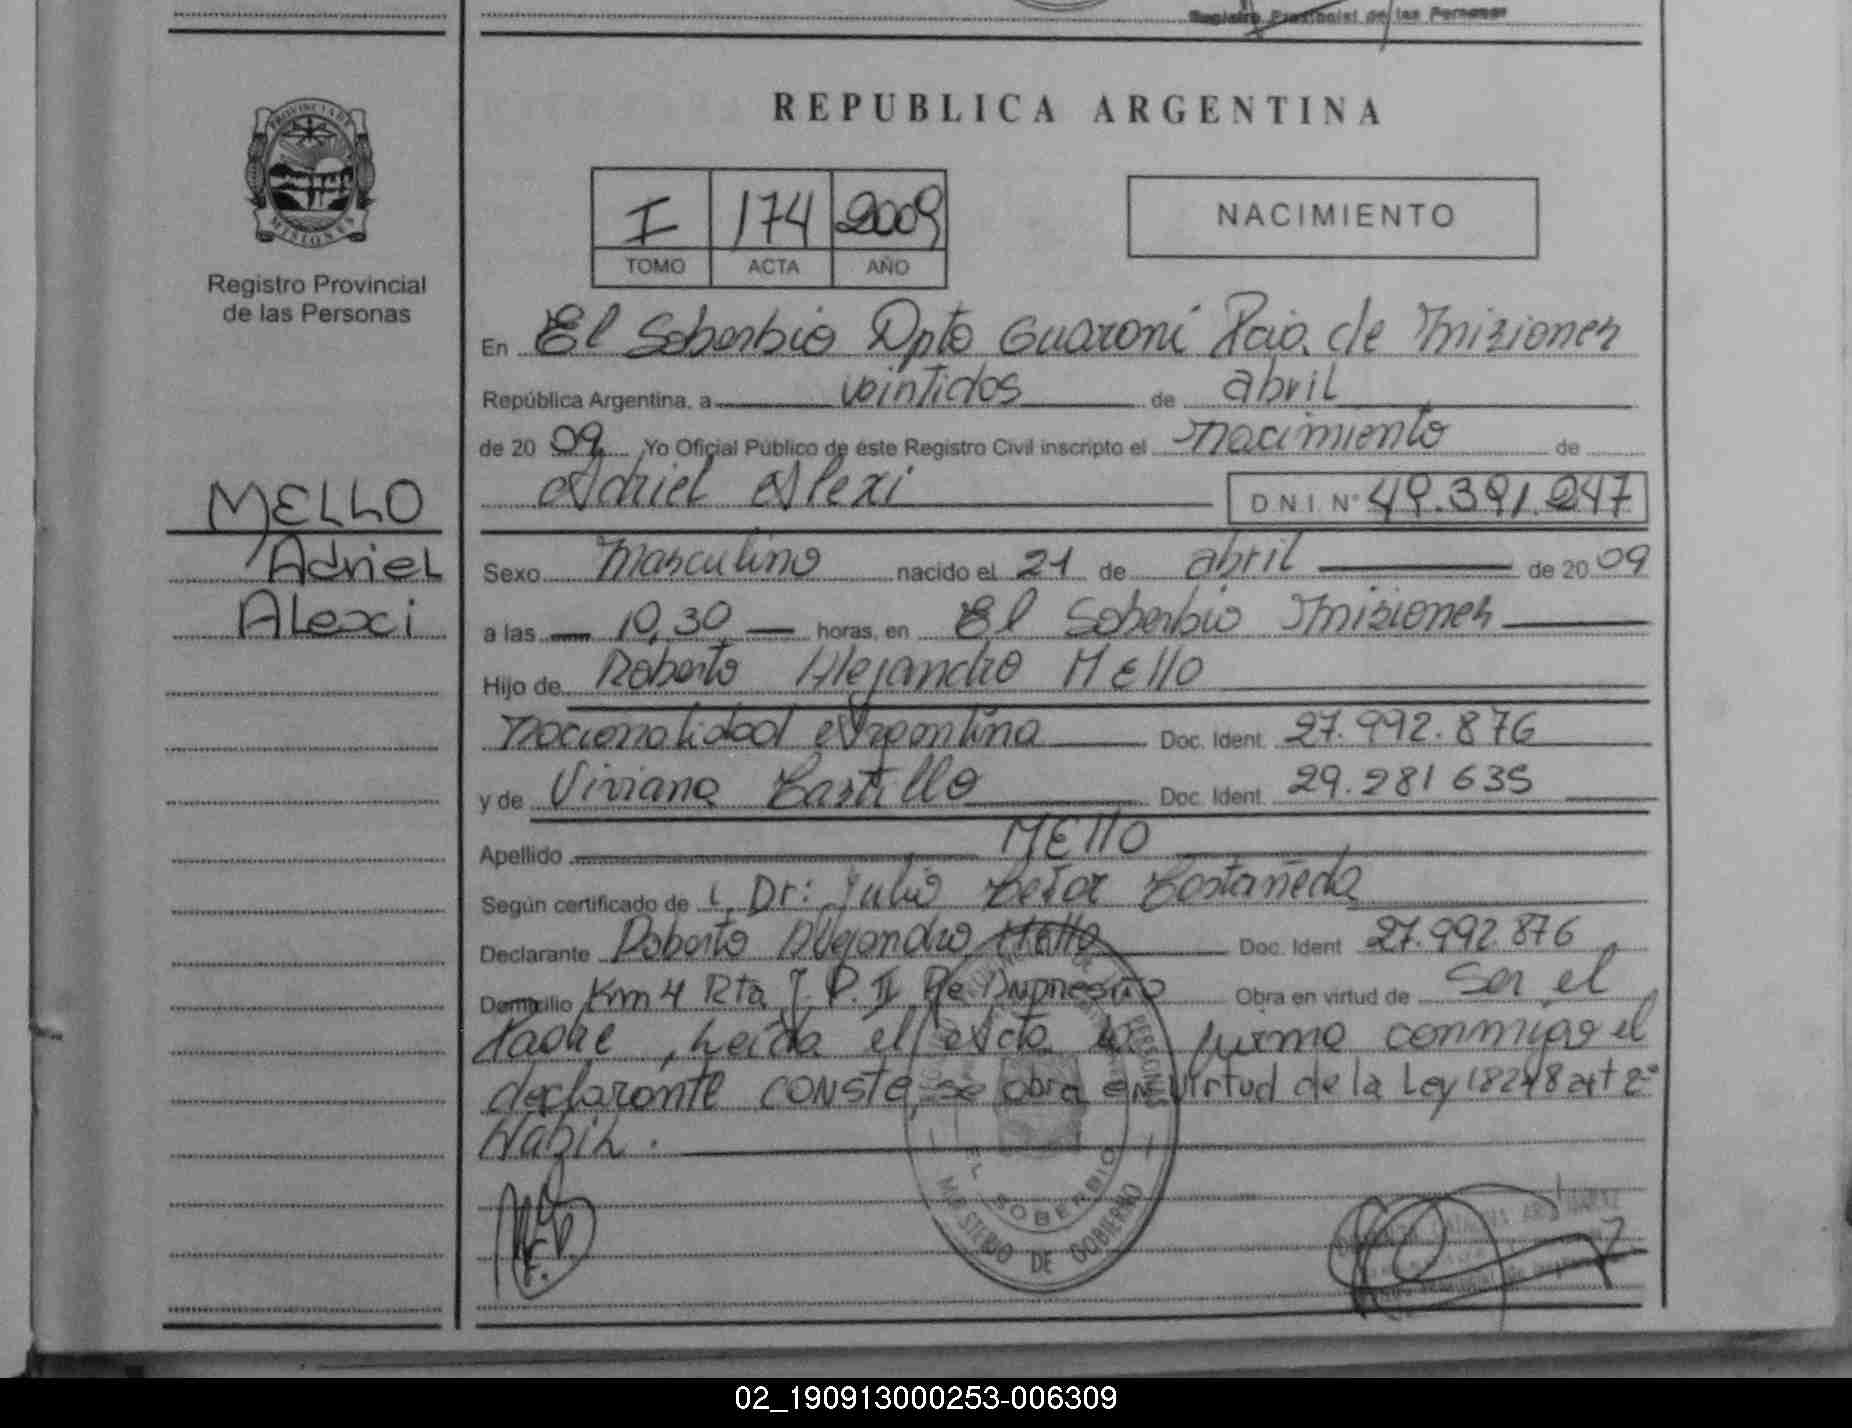 Registro Provincial de las Personas
PROVINCIA DE
MISIONES
Registro Provincial
de las Personas
MELLO
Adriel
Alexi
REPUBLICA ARGENTINA
I 174 2009
TOMO ACTA AÑO
NACIMIENTO
En El Soberbio Dpto Guaraní Pcia. de Misiones
República Argentina, a veintidos de abril
de 20 09 Yo Oficial Público de éste Registro Civil inscripto el nacimiento de
Adriel Alexi D.N.I. Nº 49.391.247
Sexo Masculino nacido el 21 de abril de 20 09
a las 10,30 horas, en El Soberbio Misiones
Hijo de Roberto Alejandro Mello
nacionalidad Argentina Doc. Ident. 27.992.876
y de Viviana Castillo Doc. Ident. 29.281635
Apellido MEllO
Según certificado de Dr: Julio Cesar Castañeda
Declarante Roberto Alejandro Mello Doc. Ident 27.992.876
Domicilio Km 4 Rta J. P. II Obra en virtud de Ser el
Padre, Leída el Acta la firma conmigo el
declarante CONSTE, se obra en virtud de la Ley 18248 art 2º
EL SOBERBIO
MINISTERIO DE GOBIERNO
02_190913000253-006309